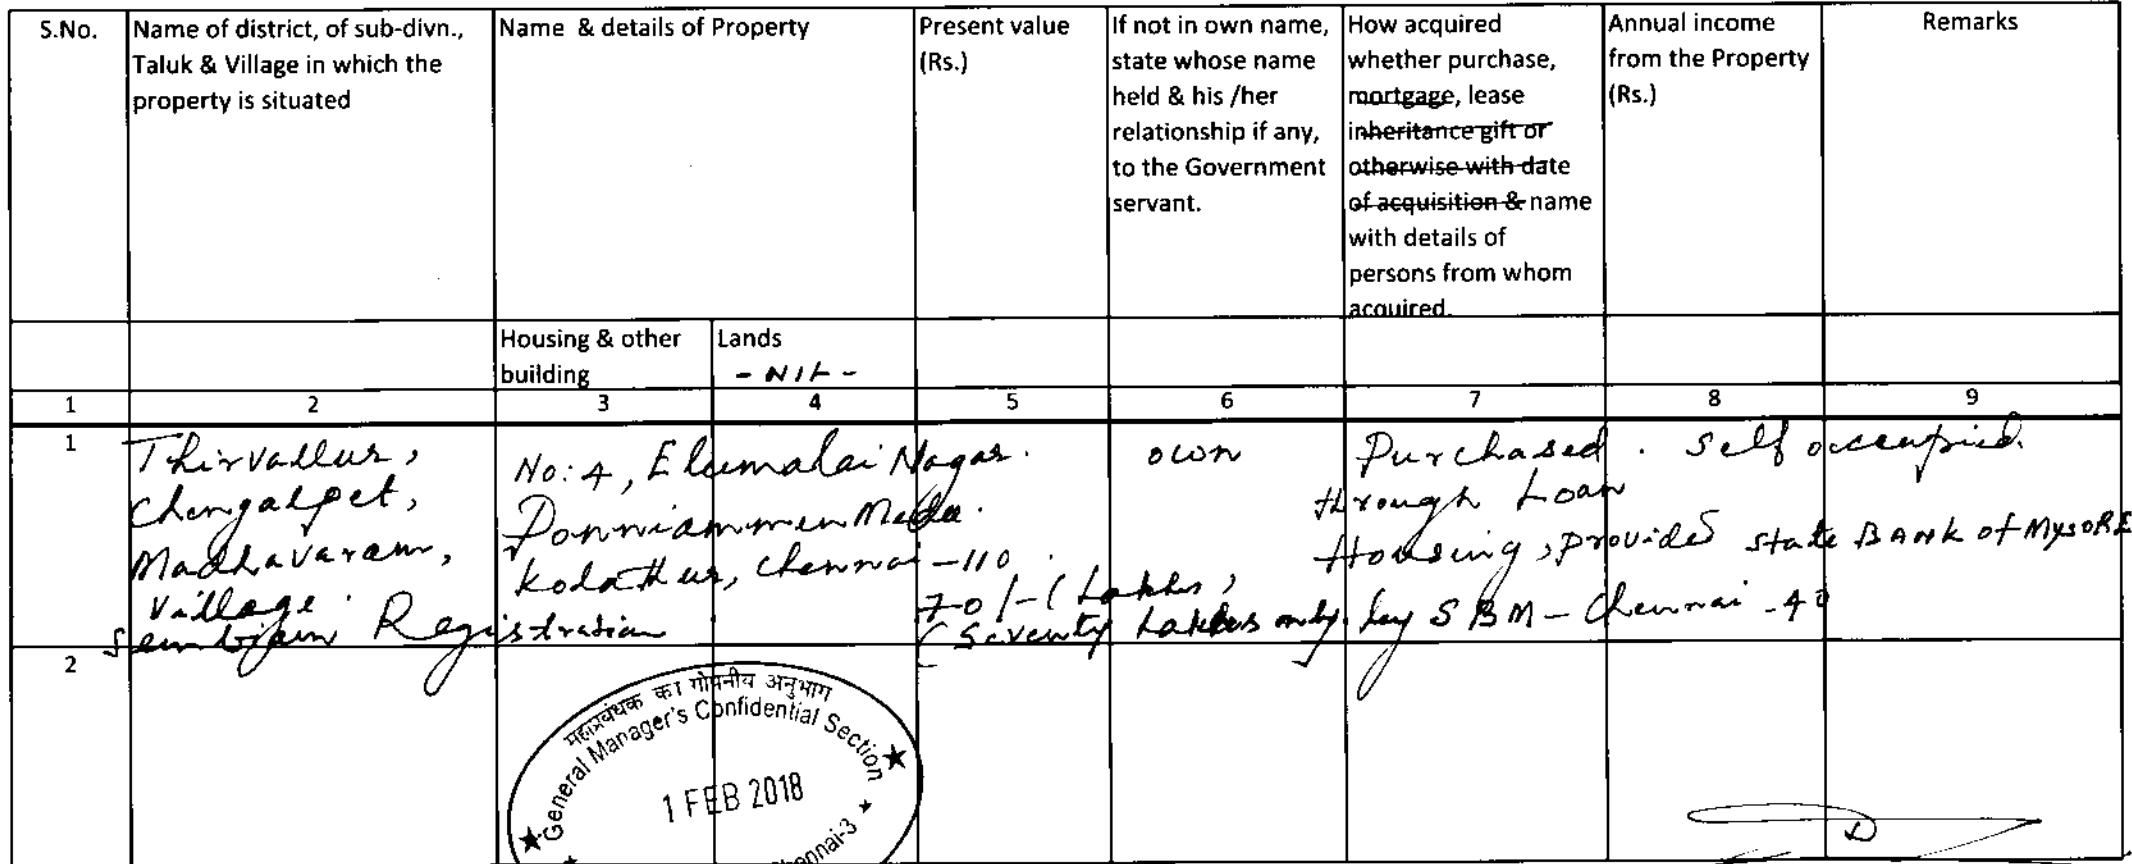 S.No.
Name of district, of sub-divn.,
Taluk & Village in which the
property is situated
Name & details of Property
Present value
(Rs.)
If not in own name,
state whose name
held & his /her
relationship if any,
to the Government
servant.
How acquired
whether purchase,
mortgage, lease
inheritance gift or
otherwise with date
of acquisition & name
with details of
persons from whom
acquired.
Annual income
from the Property
(Rs.)
Remarks
Housing & other
building
Lands
- NIL -
1 2 3 4 5 6 7 8 9
1
Thirvallur,
Chengalpet,
Madhavaram,
Village.
Sembiam Registration
No: 4, Elumalai Nagar.
Ponniammen Medu.
Kolathur, Chennai -110
70/- ( Lakhs,
( Seventy Lakhs only.
own
Purchased. Self occupied.
through Loan
Housing, Provided State BANK of MYSORE
by SBM - Chennai - 40
2
महाप्रबंधक का गोपनीय अनुभाग
General Manager's Confidential Section
1 FEB 2018
Chennai-3